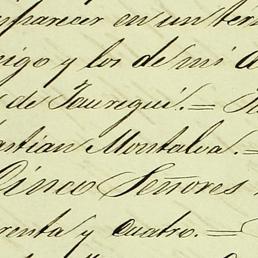 mparecer en un ter
igo y los de mi a
de Jauregui. =
astian Montalva. =
Cinco Señores
renta y cuatro. =